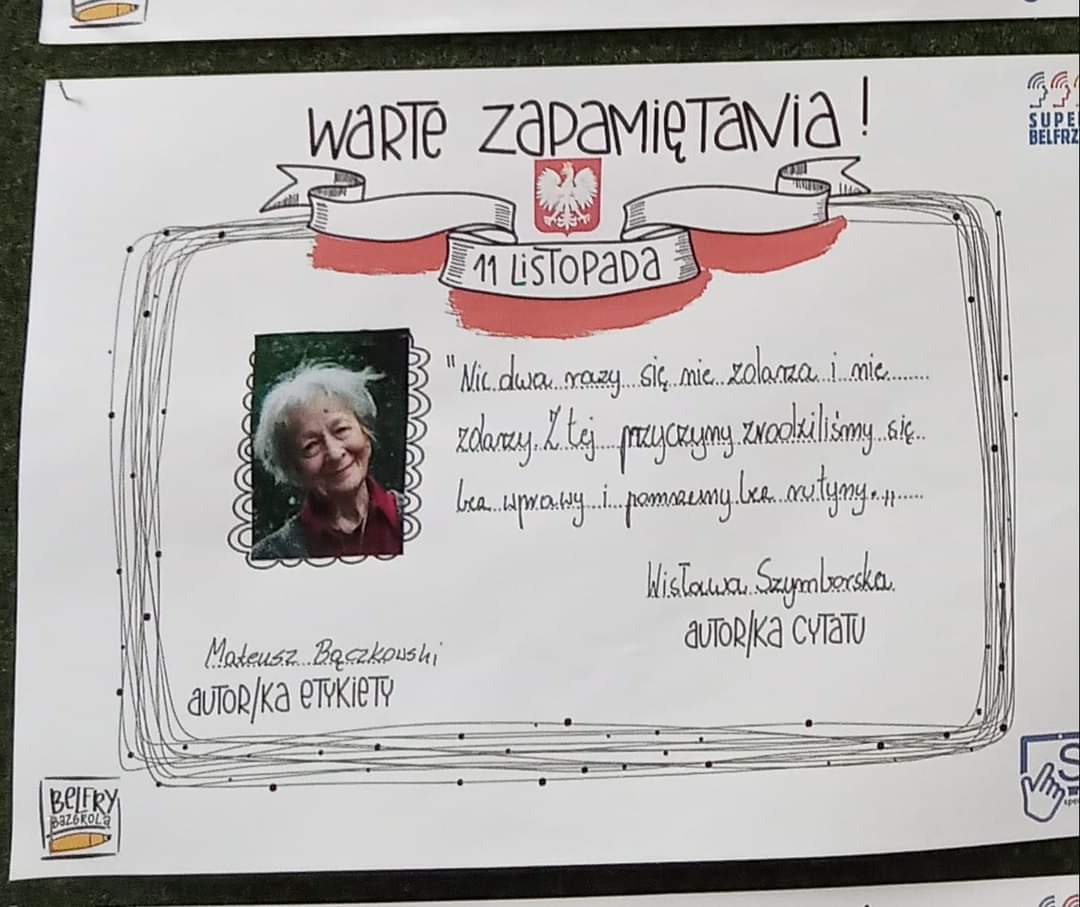 WARTE ZAPAMIĘTANIA!
SUPE
BELFRZ
11 LISTOPADA
"Nic dwa razy się nie zdarza i nie
zdarzy. Z tej przyczyny zrodziliśmy się
bez wprawy i pomrzemy bez rutyny.,,
Wisława Szymborska
AUTOR/KA CYTATU
Mateusz Bączkowski
AUTOR/KA ETYKIETY
BELFRY
BAZGROLĄ
S
spec